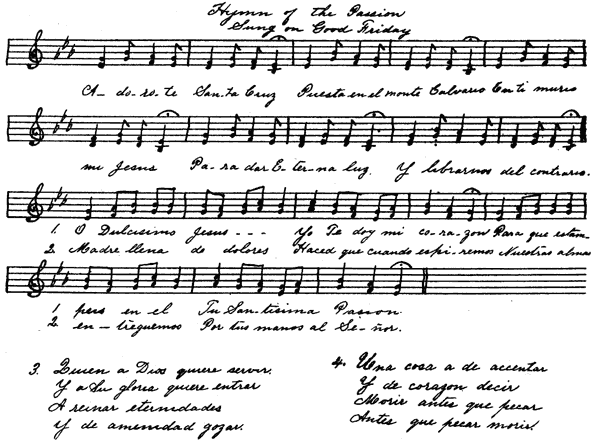 Hymn of the Passion
Sung on Good Friday
A-do-ro-te San-ta Cruz Puesta en el monte Calvario En ti murio
mi Jesus Pa-ra dar E-ter-na luz. Y librarnos del contrario.
1. O Dulcisimo Jesus - - - Yo Te doy mi co-ra-zon Para que estam-
2. Madre llena de dolores Haced que cuando espi-remos Nuestras almas
1 pers en el Tu San-tisima Pasion
2 en-treguemos Por tus manos al Se-ñor.
3. Quien a Dios quiere servir.
Y a Su gloria quiere entrar
A reinar eternidades
Y de amenidad gozar.
4. Una cosa a de accentar
Y de corazon decir
Morir antes que pecar
Antes que pecar morir.